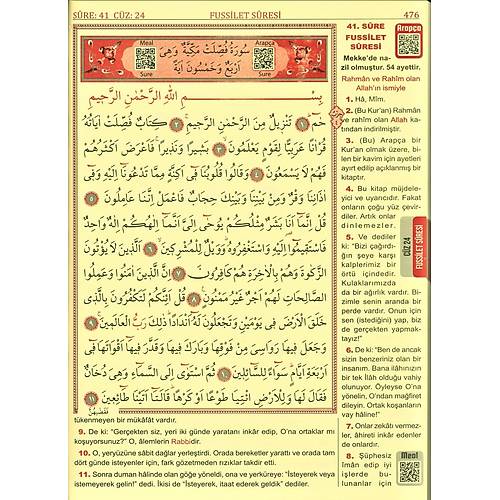 SÛRE: 41 CÜZ: 24
FUSSİLET SÛRESİ
476
Meal
Sure
سُورَةُ فُصِّلَتْ مَكِّيَّةٌ وَهِيَ
اَرْبَعٌ وَخَمْسُونَ اٰيَةً
Arapça
Sure
بِسْمِ اللّٰهِ الرَّحْمٰنِ الرَّحِيمِ
حٰمٓ ﴿١﴾ تَنْزِيلٌ مِنَ الرَّحْمٰنِ الرَّحِيمِ ﴿٢﴾ كِتَابٌ فُصِّلَتْ اٰيَاتُهُ
قُرْاٰنًا عَرَبِيًّا لِقَوْمٍ يَعْلَمُونَ ﴿٣﴾ بَشِيرًا وَنَذِيرًا فَاَعْرَضَ اَكْثَرُهُمْ
فَهُمْ لَا يَسْمَعُونَ ﴿٤﴾ وَقَالُوا قُلُوبُنَا فٓى اَكِنَّةٍ مِمَّا تَدْعُونَٓا اِلَيْهِ وَفٓى
اٰذَانِنَا وَقْرٌ وَمِنْ بَيْنِنَا وَبَيْنِكَ حِجَابٌ فَاعْمَلْ اِنَّنَا عَامِلُونَ ﴿٥﴾
قُلْ اِنَّمَٓا اَنَا۬ بَشَرٌ مِثْلُكُمْ يُوحٰٓى اِلَىَّ اَنَّمَٓا اِلٰهُكُمْ اِلٰهٌ وَاحِدٌ
فَاسْتَقِيمُٓوا اِلَيْهِ وَاسْتَغْفِرُوهُ وَوَيْلٌ لِلْمُشْرِكِينَ ﴿٦﴾ اَلَّذِينَ لَا يُؤْتُونَ
الزَّكٰوةَ وَهُمْ بِالْاٰخِرَةِ هُمْ كَافِرُونَ ﴿٧﴾ اِنَّ الَّذِينَ اٰمَنُوا وَعَمِلُوا
الصَّالِحَاتِ لَهُمْ اَجْرٌ غَيْرُ مَمْنُونٍ ﴿٨﴾ قُلْ اَئِنَّكُمْ لَتَكْفُرُونَ بِالَّذِى
خَلَقَ الْاَرْضَ فِى يَوْمَيْنِ وَتَجْعَلُونَ لَهُٓ اَنْدَادًا ذٰلِكَ رَبُّ الْعَالَمِينَ ﴿٩﴾
وَجَعَلَ فِيهَا رَوَاسِىَ مِنْ فَوْقِهَا وَبَارَكَ فِيهَا وَقَدَّرَ فِيهَٓا اَقْوَاتَهَا فٓى
اَرْبَعَةِ اَيَّامٍ سَوَٓاءً لِلسَّٓائِلِينَ ﴿١٠﴾ ثُمَّ اسْتَوٰٓى اِلَى السَّمَٓاءِ وَهِىَ دُخَانٌ
فَقَالَ لَهَا وَلِلْاَرْضِ ائْتِيَا طَوْعًا اَوْ كَرْهًا قَالَتَٓا اَتَيْنَا طَٓائِعِينَ ﴿١١﴾
فَقَضٰيهُنَّ
41. SÛRE
FUSSİLET
SÛRESİ
Arapça
Mekke'de na-
zil olmuştur. 54 ayettir.
Rahmân ve Rahîm olan
Allah'ın ismiyle
1. Hâ, Mîm.
2. (Bu Kur'an) Rahmân
ve rahîm olan Allah ka-
tından indirilmiştir.
3. (Bu) Arapça bir
Kur'an olmak üzere, bi-
len bir kavim için ayetleri
ayırt edilip açıklanmış bir
kitaptır.
4. Bu kitap müjdele-
yici ve uyarıcıdır. Fakat
onların çoğu yüz çevir-
diler. Artık onlar
dinlemezler.
5. Ve dediler
ki: "Bizi çağırdı-
ğın şeye karşı
kalplerimiz bir
örtü içindedir.
Kulaklarımızda
da bir ağırlık vardır. Bi-
zimle senin aranda bir
perde vardır. Onun için
sen (istediğini) yap, biz
de gerçekten yapmak-
tayız!"
6. De ki: "Ben de ancak
sizin benzeriniz olan bir
insanım. Bana ilâhınızın
bir tek İlâh olduğu vahiy
olunuyor. Öyleyse O'na
yönelin, O'ndan mağfiret
dileyin. Ortak koşanların
vay hâline!"
7. Onlar zekâtı vermez-
ler, âhireti inkâr edenler
de onlardır.
8. Şüphesiz
îmân edip iyi
işlerde bu-
lunanlar için
Meal
CÜZ 24
FUSSİLET SÛRESİ
tükenmeyen bir mükâfât vardır.
9. De ki: "Gerçekten siz, yeri iki günde yaratanı inkâr edip, O'na ortaklar mı
koşuyorsunuz?" O, âlemlerin Rabbidir.
10. O, yeryüzüne sâbit dağlar yerleştirdi. Orada bereketler yarattı ve orada tam
dört günde isteyenler için, fark gözetmeden rızıklar takdir etti.
11. Sonra duman hâlinde olan göğe yöneldi, ona ve yerküreye: "İsteyerek veya
istemeyerek gelin!" dedi. İkisi de "İsteyerek, itaat ederek geldik" dediler.